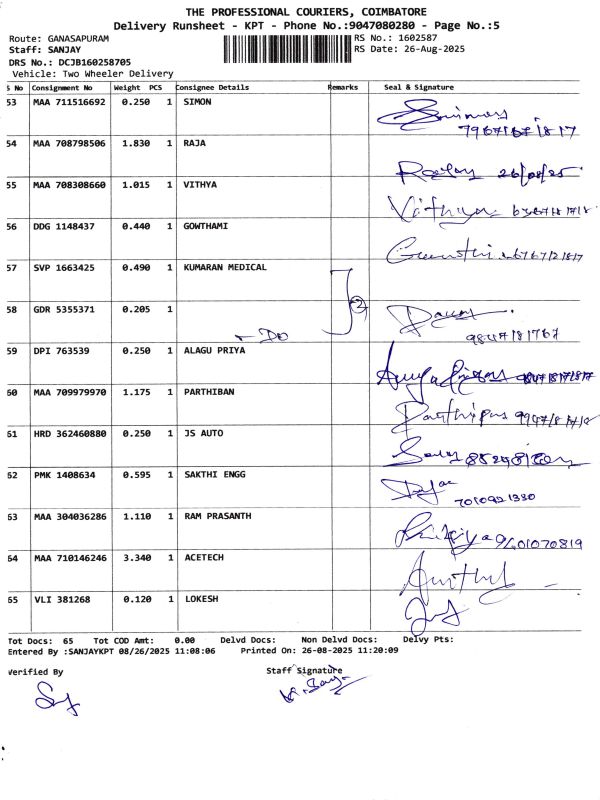 THE PROFESSIONAL COURIERS, COIMBATORE
Delivery Runsheet - KPT - Phone No.:9047080280 - Page No.:5
Route: GANASAPURAM RS No.: 1602587
Staff: SANJAY RS Date: 26-Aug-2025
DRS No.: DCJB160258705
Vehicle: Two Wheeler Delivery
S No Consignment No Weight PCS Consignee Details Remarks Seal & Signature
53 MAA 711516692 0.250 1 SIMON
54 MAA 708798506 1.830 1 RAJA
26/08/25
55 MAA 708308660 1.015 1 VITHYA
Vithya
56 DDG 1148437 0.440 1 GOWTHAMI
57 SVP 1663425 0.490 1 KUMARAN MEDICAL
2
58 GDR 5355371 0.205 1
- DO
59 DPI 763539 0.250 1 ALAGU PRIYA
60 MAA 709979970 1.175 1 PARTHIBAN
61 HRD 362460880 0.250 1 JS AUTO
62 PMK 1408634 0.595 1 SAKTHI ENGG
7010921330
63 MAA 304036286 1.110 1 RAM PRASANTH
64 MAA 710146246 3.340 1 ACETECH
65 VLI 381268 0.120 1 LOKESH
Tot Docs: 65 Tot COD Amt: 0.00 Delvd Docs: Non Delvd Docs: Delvy Pts:
Entered By :SANJAYKPT 08/26/2025 11:08:06 Printed On: 26-08-2025 11:20:09
Verified By Staff Signature